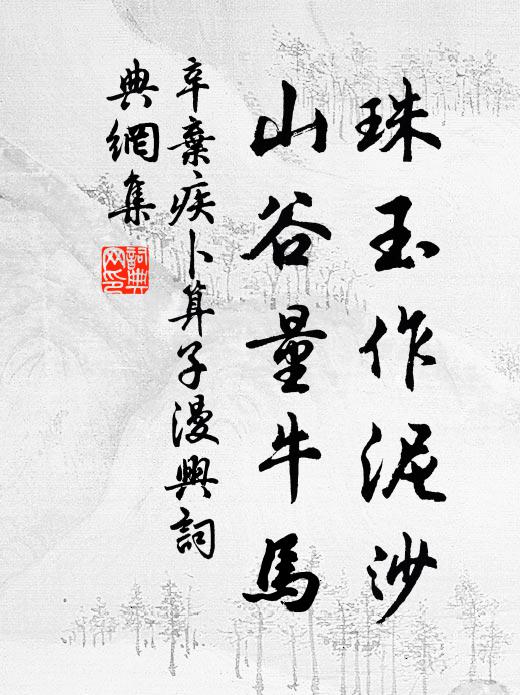 珠玉作泥沙
山谷量牛馬
辛棄疾卜算子漫興詞
典網集
詞典
网印